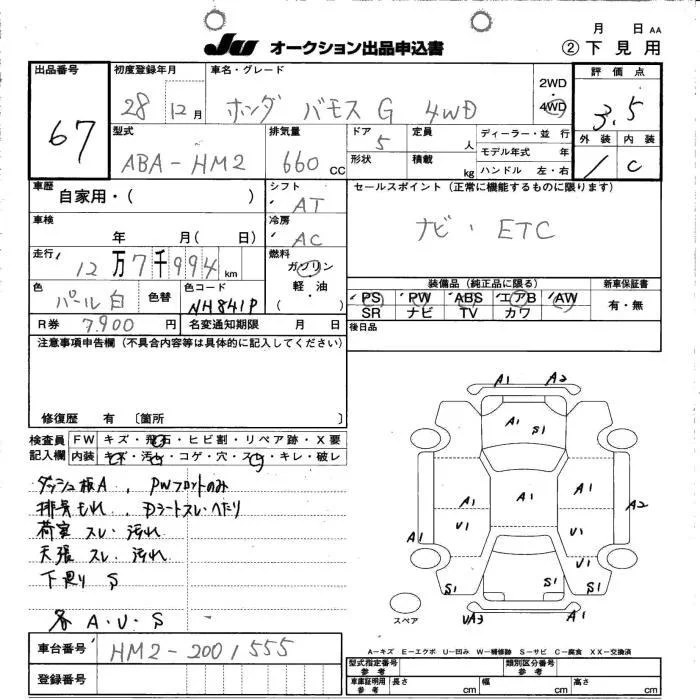 月 日 AA
JU オークション出品申込書 ② 下見用
出品番号 初度登録年月 車名・グレード 2WD 評価点
67 28 12月 ホンダ バモス G 4WD 4WD 3.5
型式 排気量 ドア 定員 ディーラー・並 行 外装 内装
ABA-HM2 660 cc 5 人 モデル年式 年 / C
形状 積載 kg ハンドル 左・右
車歴 シフト セールスポイント (正常に機能するものに限ります)
自家用・( ) AT
車検 冷房 ナビ・ETC
年 月( 日) AC
走行 燃料
12万7千994km ガソリン 装備品(純正品に限る) 新車保証書
色 色替 色コード 軽・油 PS PW ABS エアB AW 有・無
パール白 NH841P ( ) SR ナビ TV カワ
R券 7,900 円 名変通知期限 月 日 後日品
注意事項申告欄(不具合内容等は具体的に記入してください)
修復歴 有 〔箇所 〕
検査員 FW キズ・飛石・ヒビ割・リペア跡・X要
記入欄 内装 キズ・汚れ・コゲ・穴・スレ・キレ・破レ
ダッシュ板A、PWフロントのみ
排気もれ、Dシートスレ・へたり
荷室 スレ・汚れ
天張 スレ・汚れ
下廻り S
各 A・U・S
A1 A2
A1 S1
A1 A1 A1 A2
U1 U1
A1
S1 S1 S1
UA3 A1
スペア
車台番号 HM2-2001555
A-キズ E-エクボ U-凹み W-補修跡 S-サビ C-腐食 XX-交換済
登録番号 型式指定番号 参考 類別区分番号 参考
車庫証明用 参考 長さ cm 幅 cm 高さ cm